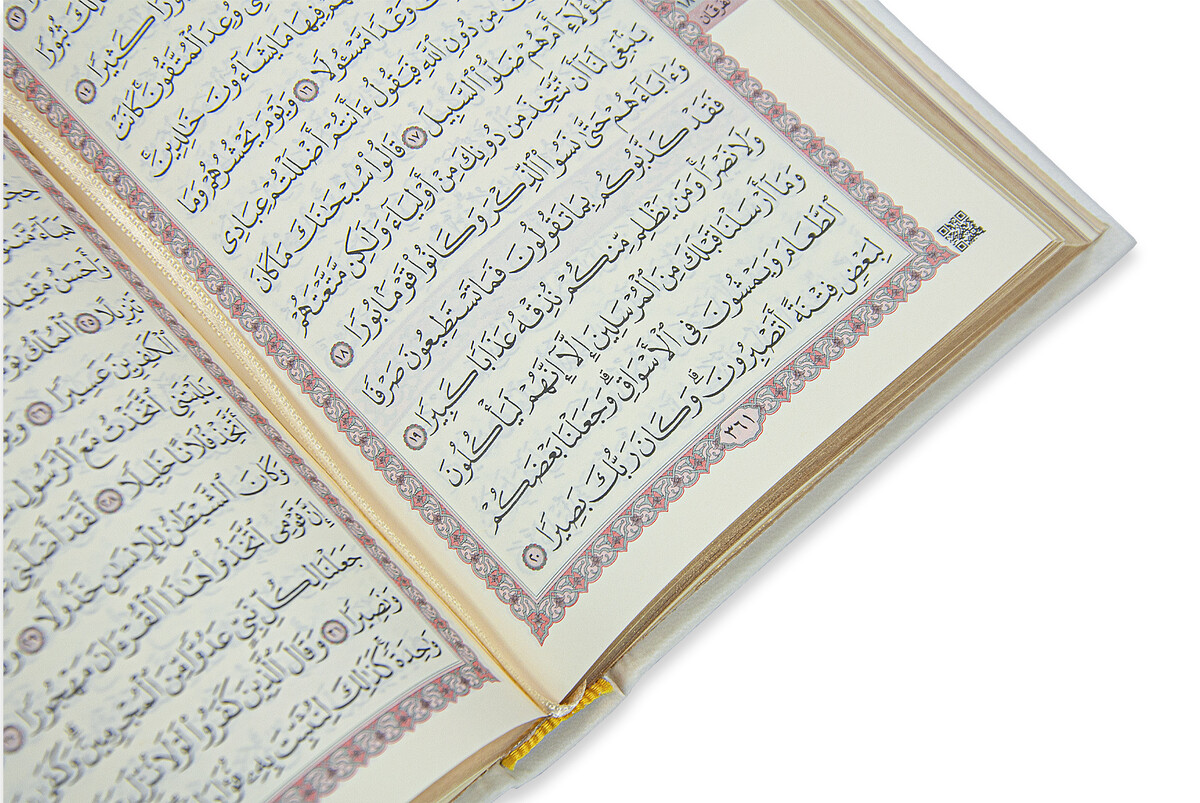 ثُبُورًا ١٣
كَثِيرًا ١٤
وُعِدَ ٱلْمُتَّقُونَ ۚ كَانَتْ
فِيهَا مَا يَشَآءُونَ خَٰلِدِينَ ۚ
وَعْدًا مَّسْـُٔولًا ١٦ وَيَوْمَ يَحْشُرُهُمْ وَمَا
مِن دُونِ ٱللَّهِ فَيَقُولُ ءَأَنتُمْ أَضْلَلْتُمْ عِبَادِى
هَٰٓؤُلَآءِ أَمْ هُمْ ضَلُّوا۟ ٱلسَّبِيلَ ١٧ قَالُوا۟ سُبْحَٰنَكَ مَا كَانَ
يَنۢبَغِى لَنَآ أَن نَّتَّخِذَ مِن دُونِكَ مِنْ أَوْلِيَآءَ وَلَٰكِن مَّتَّعْتَهُمْ
وَءَابَآءَهُمْ حَتَّىٰ نَسُوا۟ ٱلذِّكْرَ وَكَانُوا۟ قَوْمًۢا بُورًا ١٨
فَقَدْ كَذَّبُوكُم بِمَا تَقُولُونَ فَمَا تَسْتَطِيعُونَ صَرْفًا
وَلَا نَصْرًا ۚ وَمَن يَظْلِم مِّنكُمْ نُذِقْهُ عَذَابًا كَبِيرًا ١٩
وَمَآ أَرْسَلْنَا قَبْلَكَ مِنَ ٱلْمُرْسَلِينَ إِلَّآ إِنَّهُمْ لَيَأْكُلُونَ
ٱلطَّعَامَ وَيَمْشُونَ فِى ٱلْأَسْوَاقِ ۗ وَجَعَلْنَا بَعْضَكُمْ
لِبَعْضٍ فِتْنَةً أَتَصْبِرُونَ ۗ وَكَانَ رَبُّكَ بَصِيرًا ٢٠
٣٦١
وَأَحْسَنُ
تَنزِيلًا ٢٥ ٱلْمُلْكُ
ٱلْكَٰفِرِينَ عَسِيرًا ٢٦
يَٰلَيْتَنِى ٱتَّخَذْتُ مَعَ ٱلرَّسُولِ
أَتَّخِذْ فُلَانًا خَلِيلًا ٢٨ لَّقَدْ أَضَلَّنِى
وَكَانَ ٱلشَّيْطَٰنُ لِلْإِنسَٰنِ خَذُولًا ٢٩
إِنَّ قَوْمِى ٱتَّخَذُوا۟ هَٰذَا ٱلْقُرْءَانَ مَهْجُورًا ٣٠
جَعَلْنَا لِكُلِّ نَبِىٍّ عَدُوًّا مِّنَ ٱلْمُجْرِمِينَ ۗ
وَنَصِيرًا ٣١ وَقَالَ ٱلَّذِينَ كَفَرُوا۟ لَوْلَا نُزِّلَ
وَٰحِدَةً ۚ كَذَٰلِكَ لِنُثَبِّتَ بِهِۦ